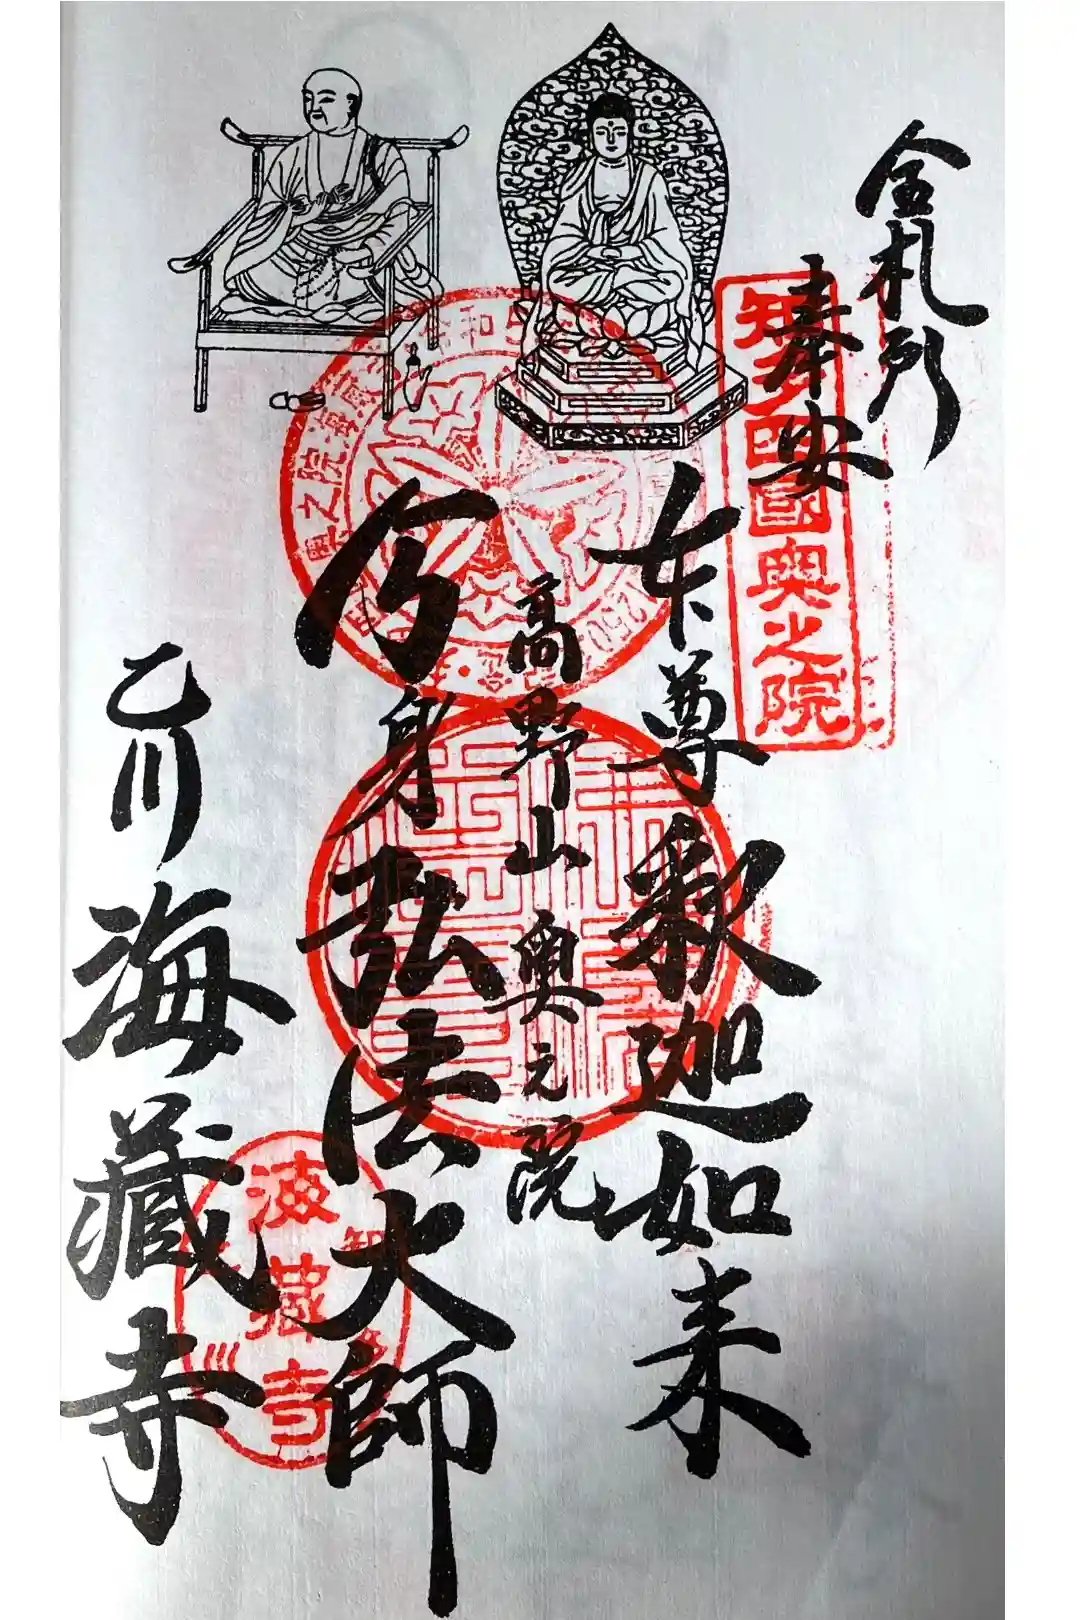 金札所
奉安
知多四國奥之院
本尊釈迦如来
高野山奥之院
分身弘法大師
乙川海蔵寺
海藏寺